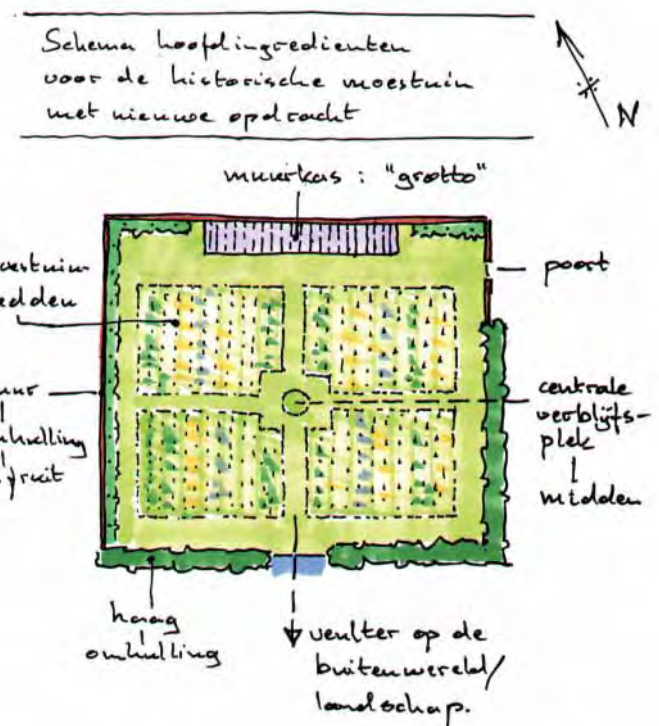 Schema hoofdingredienten
voor de historische moestuin
met nieuwe opdracht
N
muurkas : "grotto"
poort
centrale
verblijfs-
plek
midden
haag
omhulling
venster op de
buitenwereld/
landschap.